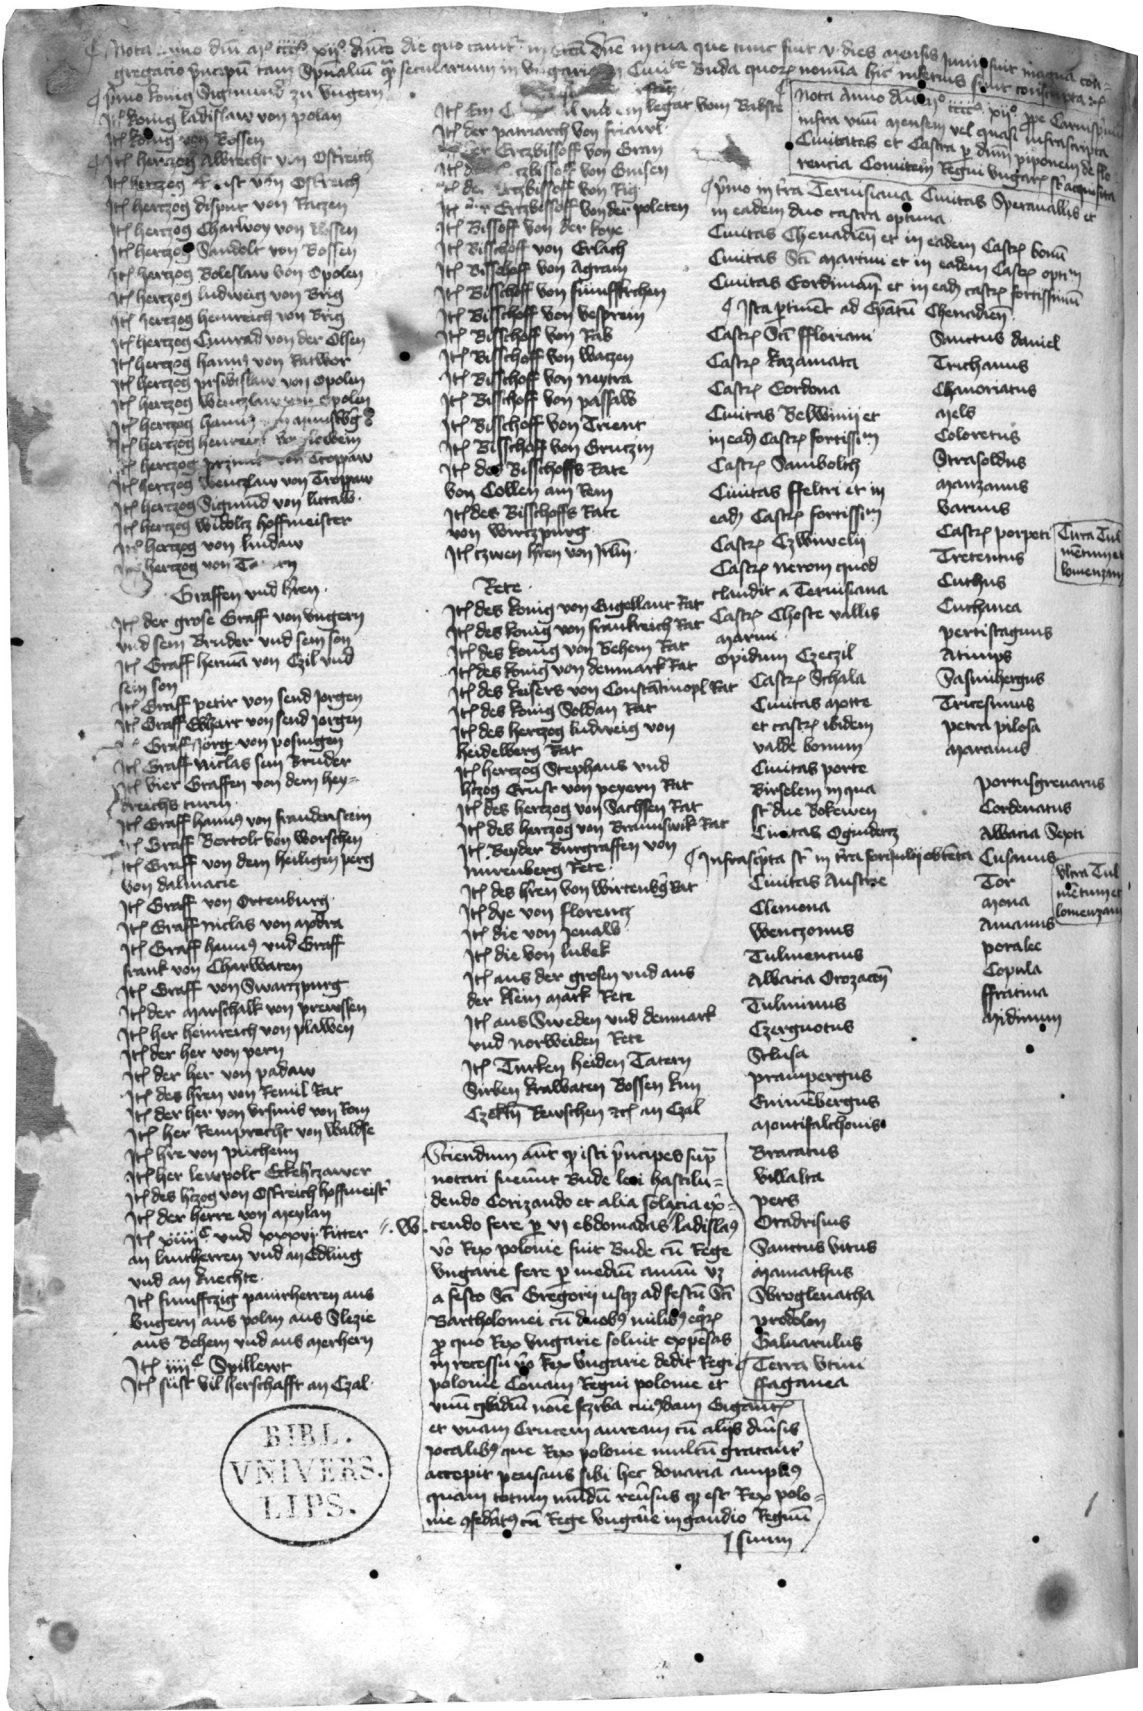 Nota Anno dni mo cccco xijo dnica die quo cantatur in ecclia dne in tua que tunc fuit v dies mensis Junij fuit magna con-
gregacio principu tam spualiu q secularium in Vngaria in Ciuite Buda quorum nomina hic inferius sunt conscripta
primo konig Sigmund zu vngern
Jt konig ladislaw von polan
Jt konig von Bossen
Jt hertzog Albrecht von Ostreich
Jt hertzog Ernst von Ostreich
Jt hertzog dispot von Raczen
Jt hertzog Charwoy von Bossen
Jt hertzog Sandolt von Bossen
Jt hertzog Boleslaw von Opolen
Jt hertzog ludwig von Brig
Jt hertzog heinreich von Brig
Jt hertzog Cunrad von der Olsen
Jt hertzog hanns von Ratwor
Jt hertzog prsimislaw von Opolen
Jt hertzog wenczlaw von Opolen
Jt hertzog hanns
Jt hertzog heinreich
Jt hertzog von Troppaw
Jt hertzog wenczlaw von Troppaw
Jt hertzog Sigmund von littaw
Jt hertzog widoltz hoffmeister
Jt hertzog von lindaw
Jt hertzog von
Graffen vnd hren
Jt der grose Graff von vngern
vnd sein Bruder vnd sein son
Jt Graff herman von Czil vnd
sein son
Jt Graff petir von send Jorgen
Jt Graff Ebhart von send Jorgen
Jt Graff Jorg von posingen
Jt Graff Niclas sein Bruder
Jt vier Graffen von dem hey-
dreichs turm
Jt Graff hanns von fraudenstein
Jt Graff Bertolt von Worschen
Jt Graff von dem heiligen perg
von dalmacie
Jt Graff von Ortenburg
Jt Graff Niclas von modra
Jt Graff hanns vnd Graff
frank von Charwaten
Jt Graff von Swartzpurg
Jt der Marschalk von prewssen
Jt her heinreich von plawen
Jt der her von pern
Jt der her von padaw
Jt des hren von Remil Rat
Jt der her von vrsinis von Rom
Jt her Remprecht von Waldse
Jt hre von puchenn
Jt her lewpolt Eckehczawer
Jt des hczog von Ostreich hoffmeistr
Jt der herre von Meylan
Jt xiiijc vnd xxxvj Ritter
an lantherren vnd an Edling
vnd an knechte
Jt funfftzig panirherren aus
Vngern aus polan aus Slezie
aus Behem vnd aus Merhern
Jt iiijc Spillewt
Jt sust vil herschafft an Czal
legat vom Babste
Jt der patriarch von friawl
Jt der Ertzbissoff von Gran
Jt der Ertzbissoff von Gnisen
Jt der Ertzbissoff von Rig
Jt der Ertzbissoff von der poleten
Jt Bissoff von der koye
Jt Bisschoff von Erlach
Jt Bisschoff von Agram
Jt Bisschoff von fumffkrchen
Jt Bisschoff von Vesprein
Jt Bisschoff von Rab
Jt Bisschoff von Watzen
Jt Bisschoff von Neytra
Jt Bisschoff von passaw
Jt Bisschoff von Trient
Jt Bisschoff von Gruczin
Jt des Bisschoffs Rate
von Collen am Rein
Jt des Bisschoffs Rate
von Wurtzpurg
Jt czwen hren von Jrlm
Rete
Jt des konig von Engellant Rat
Jt des konig von frankreich Rat
Jt des konig von Behem Rat
Jt des konig von denmark Rat
Jt des keisers von Constantinopl Rat
Jt des konig Soldan Rat
Jt des hertzog ludweig von
heidelwerg Rat
Jt hertzog Stephans vnd
hczog Ernst von peyern Rat
Jt des hertzog von Sachsen Rat
Jt des hertzog von Braunswik Rat
Jt Beyder Burgraffen von
Nurenberg Rete
Jt des hren von Wirtenbg Rat
Jt dye von florencz
Jt die von Jenaw
Jt die von lubek
Jt aus der grosen vnd aus
der klein Mark Rete
Jt aus Sweden vnd denmark
vnd Norweiden Rete
Jt Turken heiden Tatern
Sirben krawaten Bossen kun
Czekln Rewschen etc an Czal
Sciendum aut q isti principes supra
notati fuerunt Bude leti hastilu-
dendo Corizando et alia solacia exer-
cendo fere per vj ebdomadas ladislaus
vero Rex polonie fuit Bude cu Rege
vngarie fere per mediu annum vz
a festo Sti Gregorij usque ad festu Sti
Bartholomei cu duobus milibus equorum
pro quo Rex vngarie soluit expensas
in recessu vero Rex vngarie dedit Regi
polonie Coronam Regni polonie et
vnu gladiu noie sczrba cuiusdam Gigantis
et vnam Crucem auream cu alijs diuersis
jocalibus que Rex polonie multu gratater
accepit pensans sibi hec donaria amplius
quam totum mundu reuersus q est Rex polo-
nie confederatus cu Rege vngarie in gaudio Regnu
suum
Nota Anno dni mo cccco xijo
infra vnu mensem vel quasi infrascripta
Ciuitates et Castra per dnm piponem de flo
rencia Comitem Regni vngarie st acquisita
primo in terra Teruisiana Ciuitas Sperauallis et
in eadem duo castra optima
Ciuitas Chenadien et in eadem Castrum bonu
Ciuitas Sti Martini et in eadem Castrum optim
Ciuitas Cordiman et in ead castrum fortissimu
Ista pertinent ad Epatum Chenadien
Castrum Sti ffloriani
Castrum Razamata
Castrum Cordona
Ciuitas Belwinij et
in ead Castrum fortissim
Castrum Sambolch
Ciuitas ffeltri et in
ead Castrum fortissim
Castrum Czwiwelij
Castrum Nerom quod
claudit a Teruisiana
Castrum Choste vallis
Marini
Opidum Czeczil
Castrum Schala
Ciuitas Motte
et castrum ibidem
valde bonum
Ciuitas porte
Birselem in qua
st due Bokewen
Ciuitas Ogmdercz
Infrascripta st in terra forijulij obtenta
Ciuitas Austrie
Clemona
Wenczonus
Tulmencius
Abbacia Orozacen
Tulminus
Czergnotus
Sclusa
prampergus
Grunebergus
Montifalchonis
Bracatus
Villalta
pers
Oradrisius
Sanctus Vitus
Mamathus
Sbroglenatha
prodolon
Galuarulus
Terra Vtini
ffaganea
Sanctus daniel
Trichanus
Chanoriatus
Mels
Coloretus
Strasoldus
Manzanus
Varinus
Castrum porpeti
Tretentus
Cuthus
Cuchanea
pertistagnus
Atimps
Sasimbergus
Tricesimus
petra pilosa
Maranus
portusgreuarus
Cordeuatus
Abbacia Septi
Cusanus
Tor
Mona
Amanus
peralee
Copula
ffratina
Midinum
Citra Tul
mentum et
lowenzam
Vltra Tul
mentum et
lowenzam
BIBL.
VNIVERS.
LIPS.